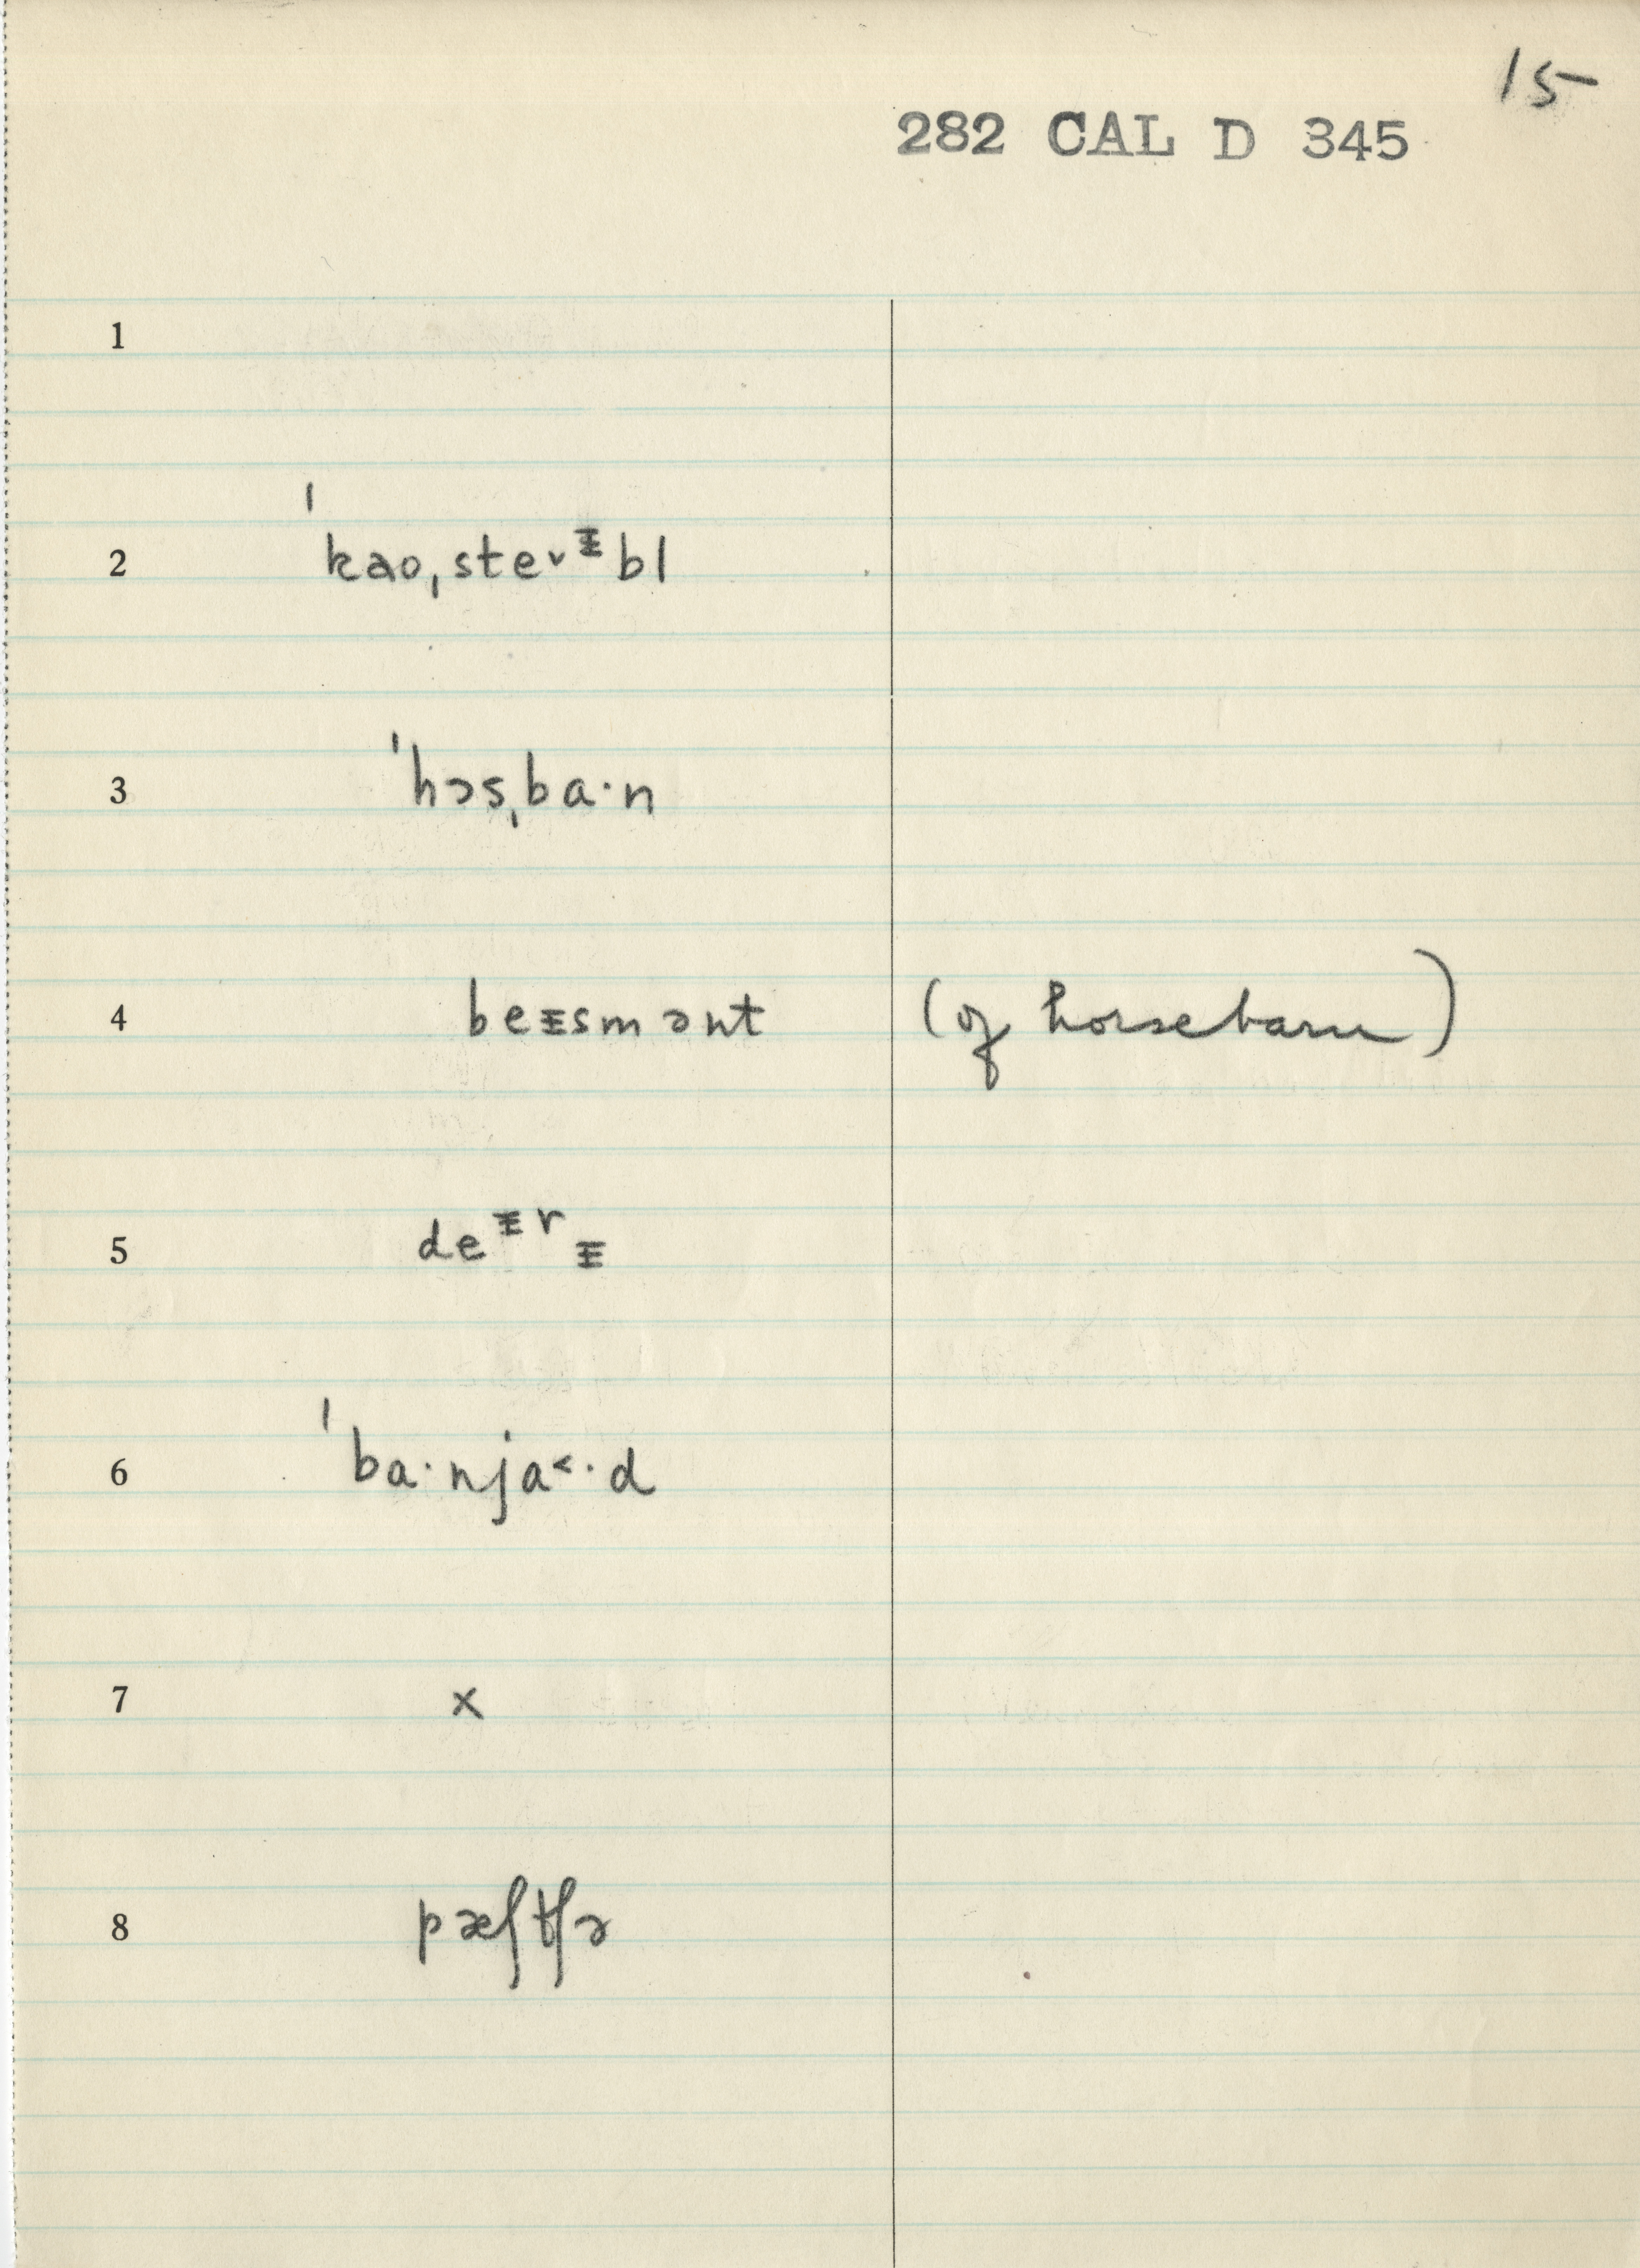 15
282 CAL D 345
1
2 ˈkaoˌste˅ᵻbl
3 ˈhɔsˌba·n
4 beᵻsmənt (of horsebarn)
5 deᵻrᵻ
6 ˈba·nja˂·d
7 x
8 pæʃtʃə